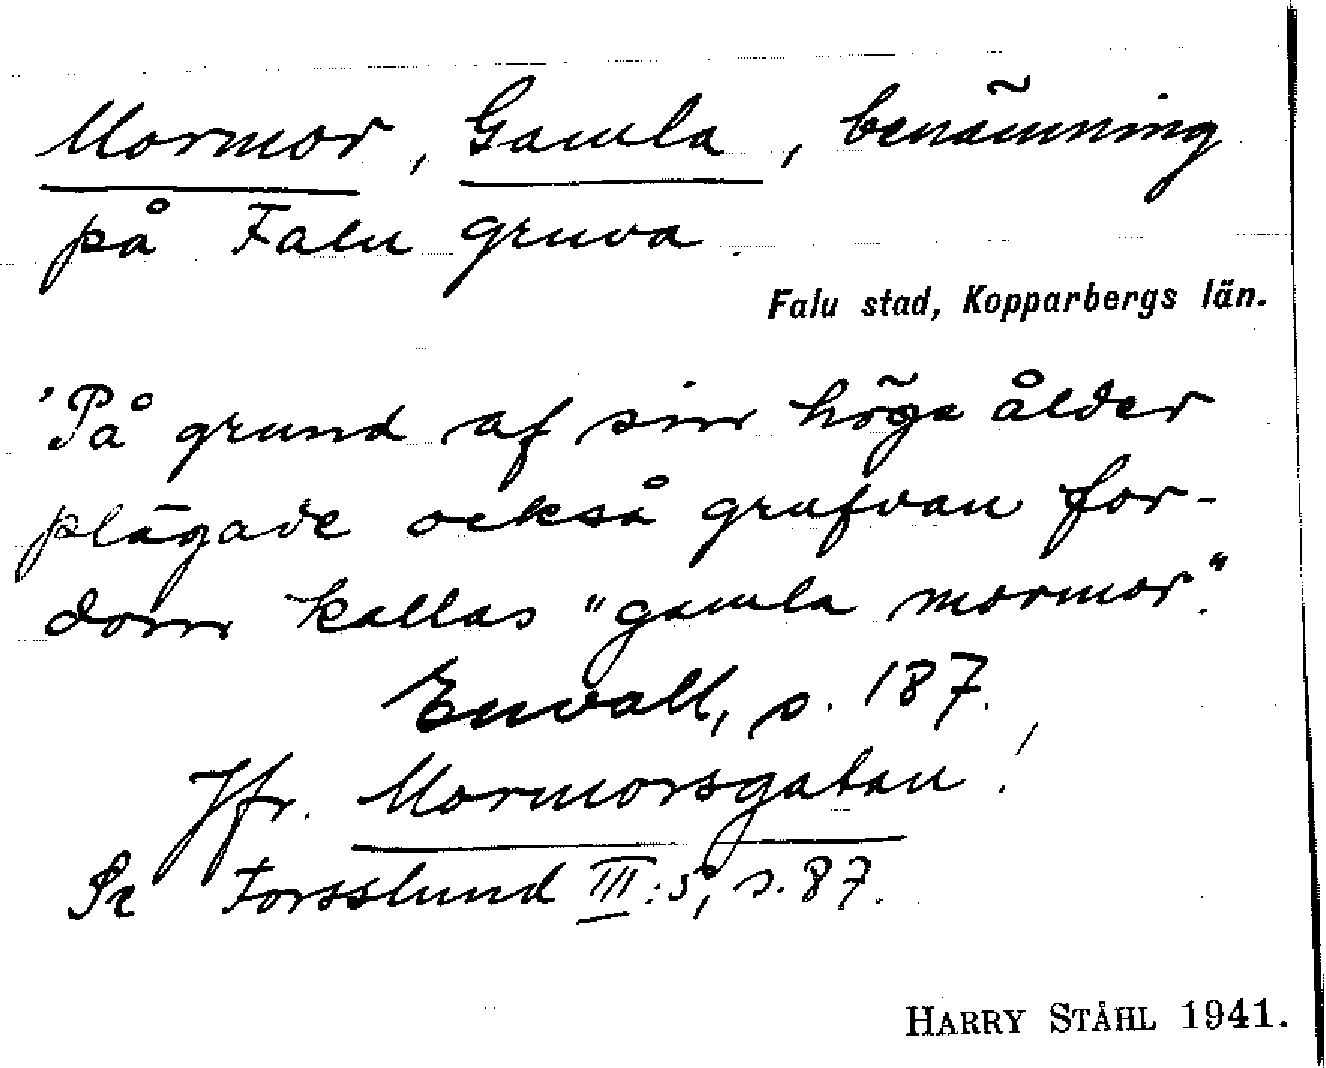 Mormor, Gamla, benämning
på Falu gruva.
Falu stad, Kopparbergs län.
'På grund af sin höga ålder
plägade också grufvan for-
dom kallas "gamla mormor."
Envall, s. 187.
Jfr. Mormorsgatan!
Se Forsslund III:5, s. 87.
HARRY STÅHL 1941.